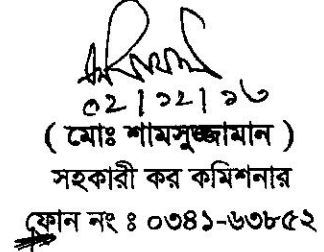 ০২|১২|১৩
( মোঃ শামসুজ্জামান )
সহকারী কর কমিশনার
ফোন নং ঃ ০৩৪১-৬৩৮৫২